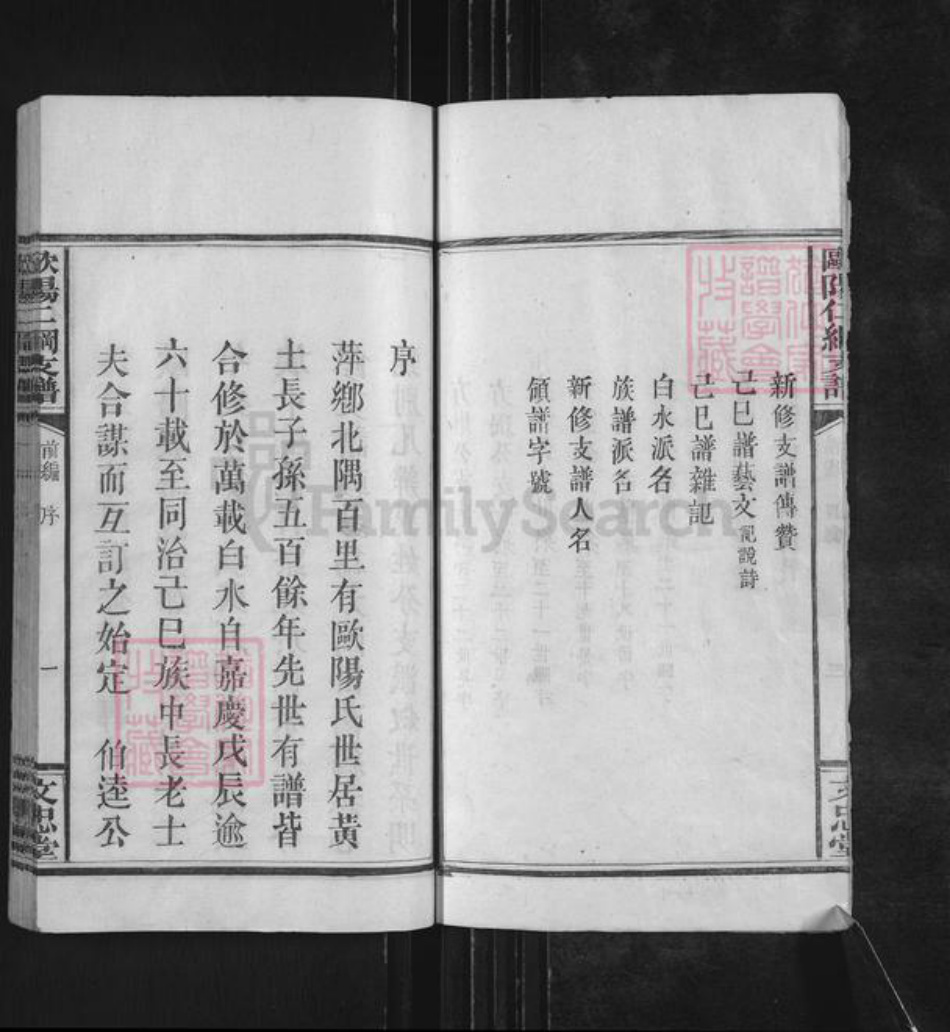 新修支譜傳贊
己巳譜藝文記說詩
己巳譜雜記
白水派名
族譜派名
新修支譜人名
領譜字號
文忠堂
序
萍鄉北隅百里有歐陽氏世居黃
土長子孫五百餘年先世有譜皆
合修於萬載白水自嘉慶戊辰逾
六十載至同治己巳族中長老士
夫合謀而互訂之始定 伯逵公
前編 序 一
文忠堂
FamilySearch